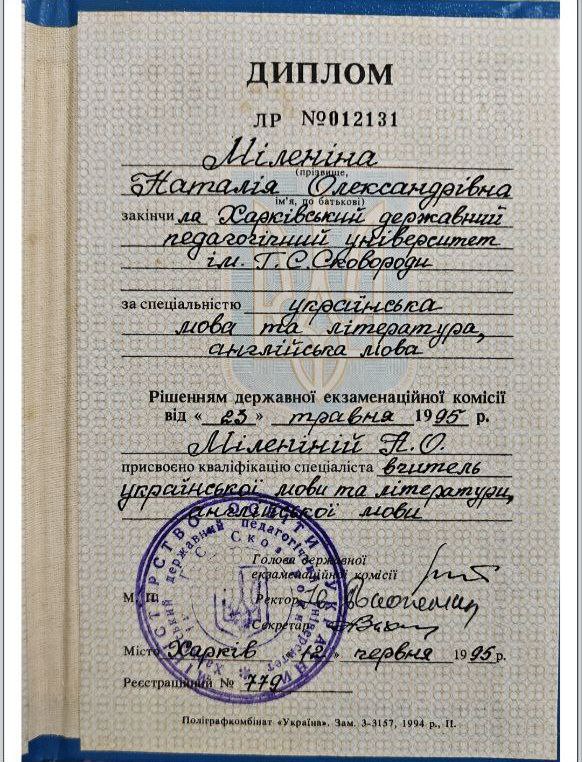 ДИПЛОМ
ЛР №012131
Міленіна
(прізвище,
Наталія Олександрівна
ім'я, по батькові)
закінчила Харківський державний
педагогічний університет
ім. Г.С.Сковороди
за спеціальністю українська
мова та література,
англійська мова
Рішенням державної екзаменаційної комісії
від « 23 » травня 1995 р.
Міленіній Н.О.
присвоєно кваліфікацію спеціаліста вчитель
української мови та літератури,
англійської мови
Голова державної
екзаменаційної комісії
М. П. Ректор
Секретар
Місто Харків 12 » червня 1995 р.
Реєстраційний № 779
Поліграфкомбінат «Україна». Зам. 3-3157, 1994 р., II.